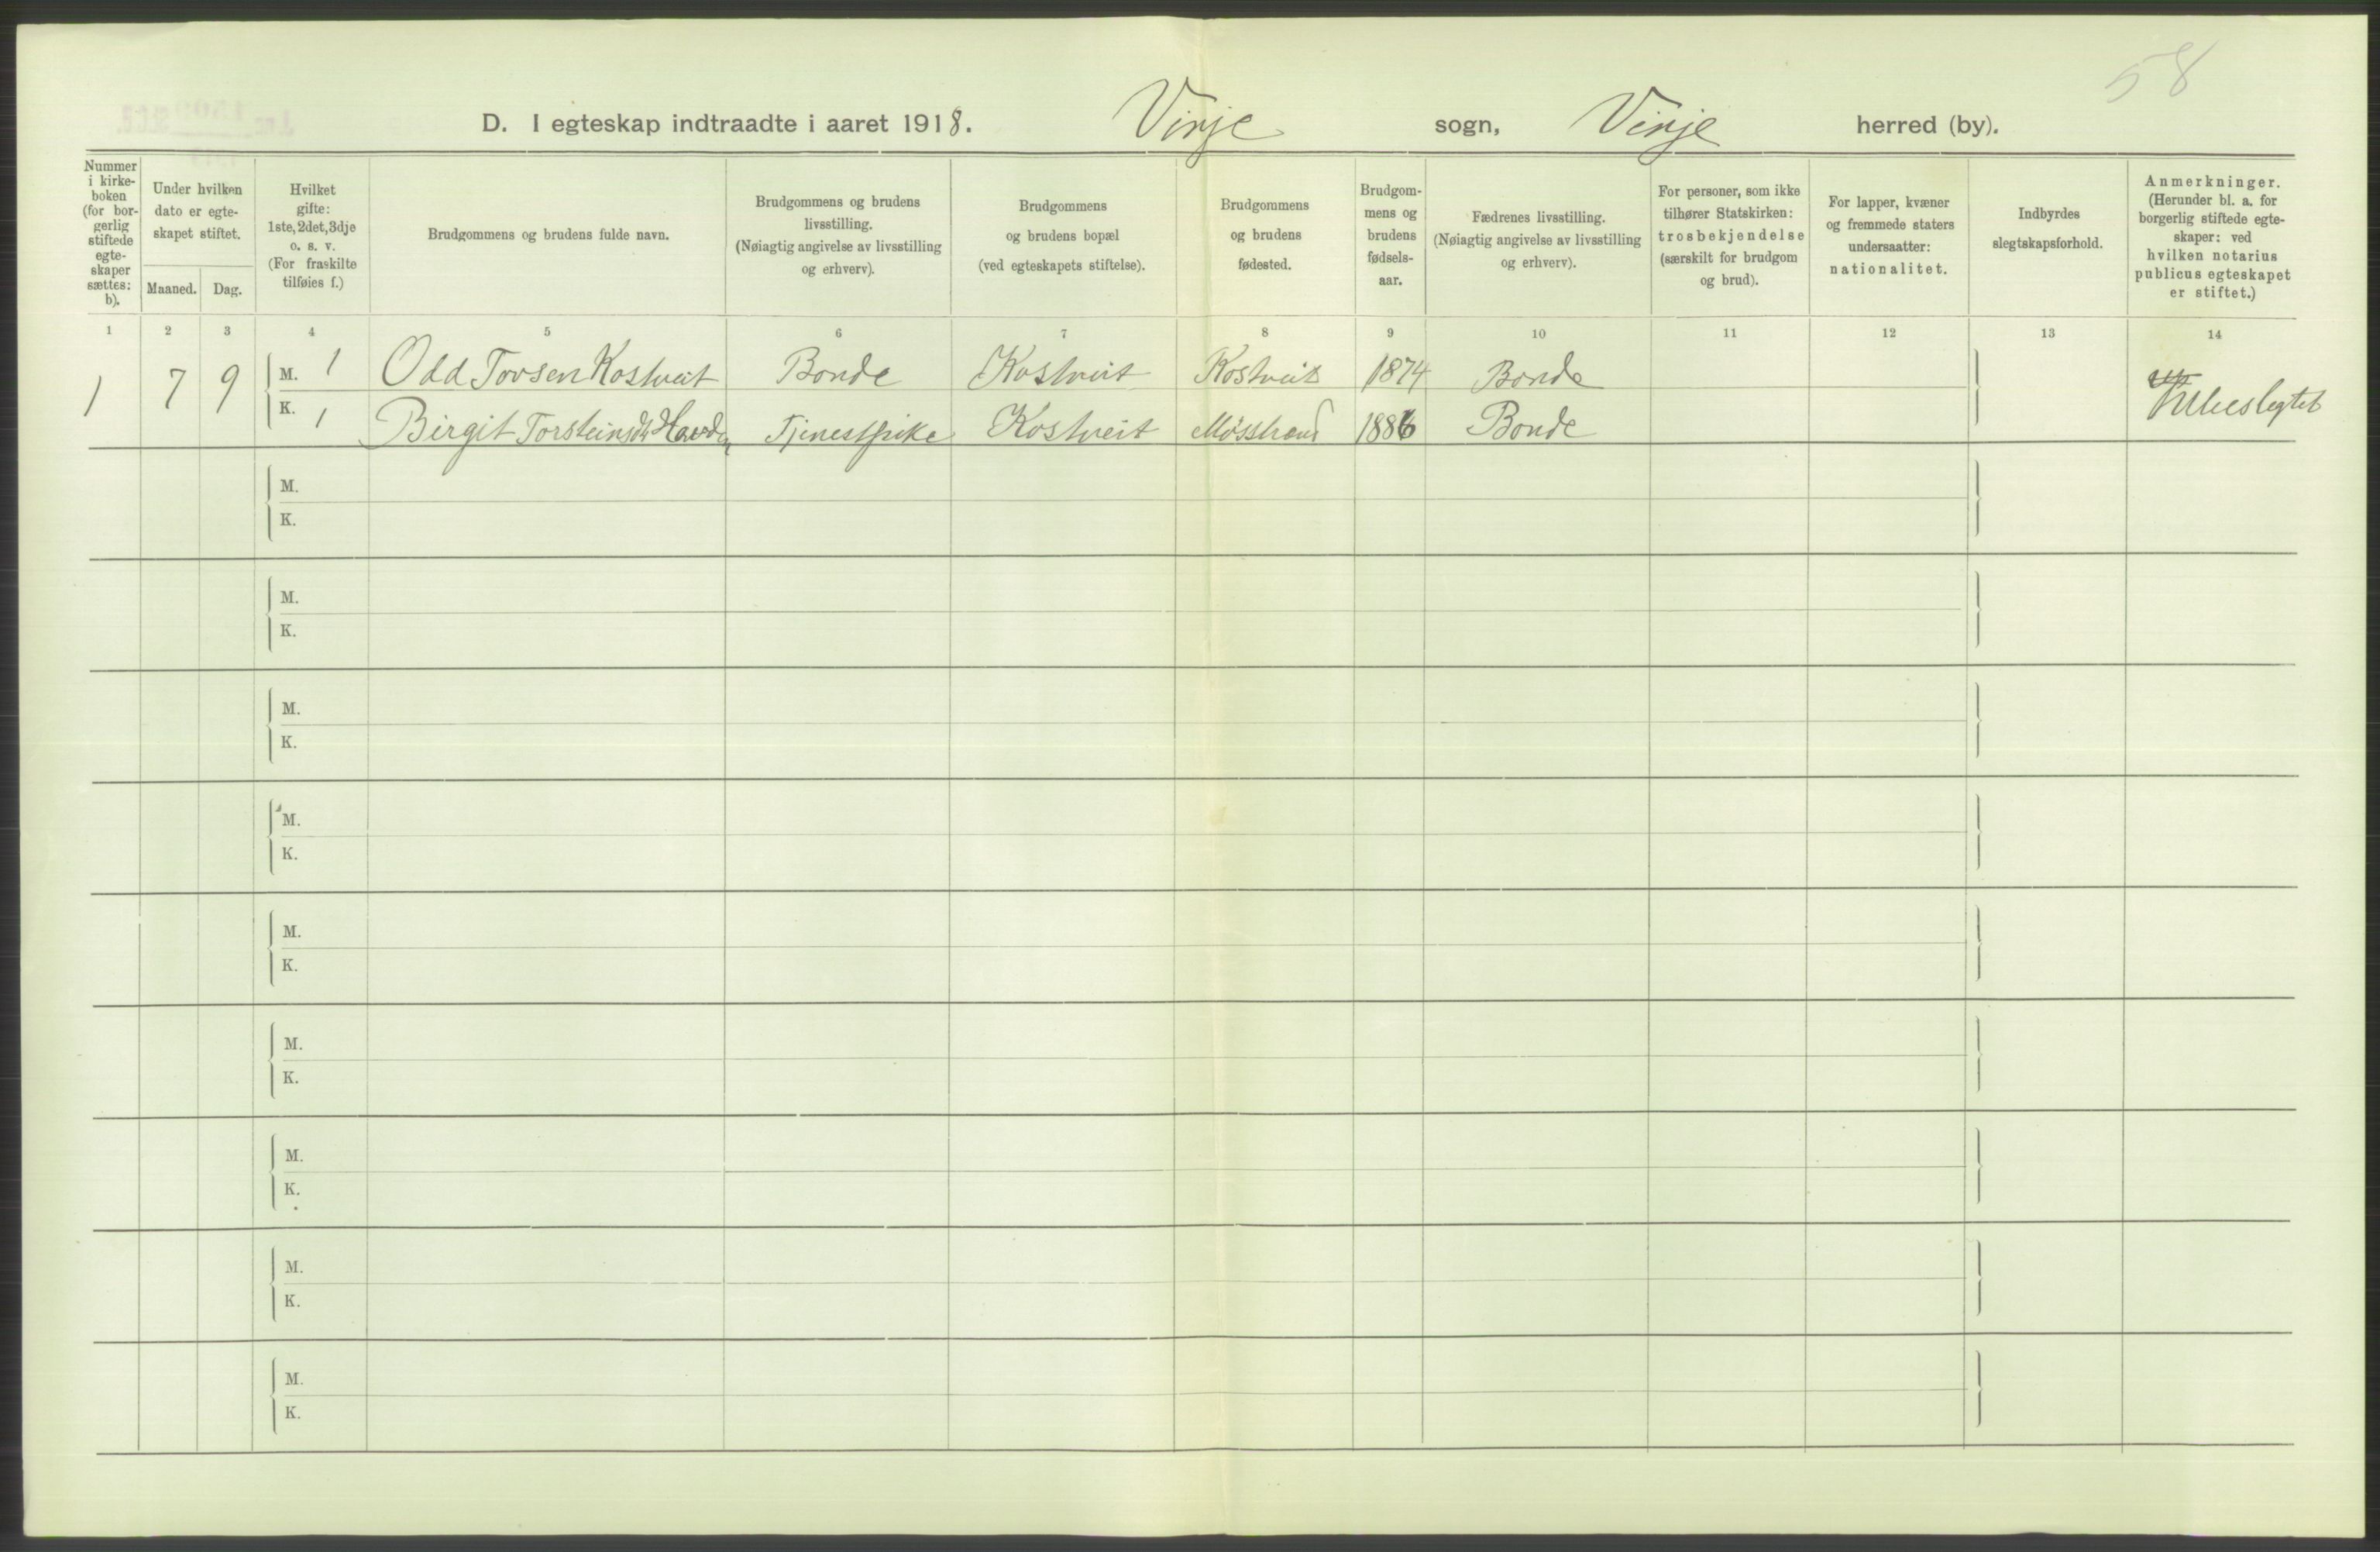 58
D. I egteskap indtraadte i aaret 1918. Vinje sogn, Vinje herred (by).
Nummer
i kirke-
boken
(for bor-
gerlig
stiftede
egte-
skaper
sættes:
b).
Under hvilken
dato er egte-
skapet stiftet.
Maaned. Dag.
Hvilket
gifte:
1ste, 2det, 3dje
o. s. v.
(For fraskilte
tilføies f.)
Brudgommens og brudens fulde navn.
Brudgommens og brudens
livsstilling.
(Nøiagtig angivelse av livsstilling
og erhverv).
Brudgommens
og brudens bopæl
(ved egteskapets stiftelse).
Brudgommens
og brudens
fødested.
Brudgom-
mens og
brudens
fødsels-
aar.
Fædrenes livsstilling.
(Nøiagtig angivelse av livsstilling
og erhverv).
For personer, som ikke
tilhører Statskirken:
trosbekjendelse
(særskilt for brudgom
og brud).
For lapper, kvæner
og fremmede staters
undersaatter:
nationalitet.
Indbyrdes
slegtskapsforhold.
Anmerkninger.
(Herunder bl. a. for
borgerlig stiftede egte-
skaper: ved
hvilken notarius
publicus egteskapet
er stiftet.)
1 2 3 4 5 6 7 8 9 10 11 12 13 14
1 7 9 M. 1 Odd Tovsen Kostveit Bonde Kostveit Kostveit 1874 Bonde
K. 1 Birgit Torsteinsdt Tjenestpike Kostveit Møsstrand 1886 Bonde
M.
K.
M.
K.
M.
K.
M.
K.
M.
K.
M.
K.
M.
K.
M.
K.
M.
K.